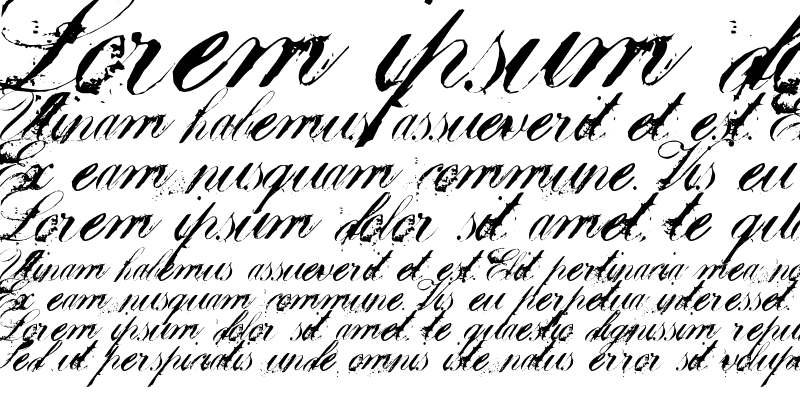 Lorem ipsum do
Utinam habemus assueverit et est. E
Ex eam nusquam commune. Vis eu
Lorem ipsum dolor sit amet, te qua
Utinam habemus assueverit et est. Elit pertinacia mea no
Ex eam nusquam commune. Vis eu perpetua interesset.
Lorem ipsum dolor sit amet, te quaestio dignissim repu
Sed ut perspiciatis unde omnis iste natus error sit volupt